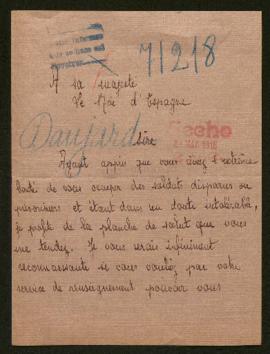 71218
A sa majesté
Le Roi d'Espagne
Daujard
Sire
Hecho
Ayant appris que vous avez l'extrême
bonté de vous occuper des soldats disparus ou
prisonniers et étant dans un doute intolérable,
je profite de la planche de salut que vous
me tendez. Je vous serais infiniment
reconnaissante si vous vouliez par votre
service de renseignement pouvoir vous